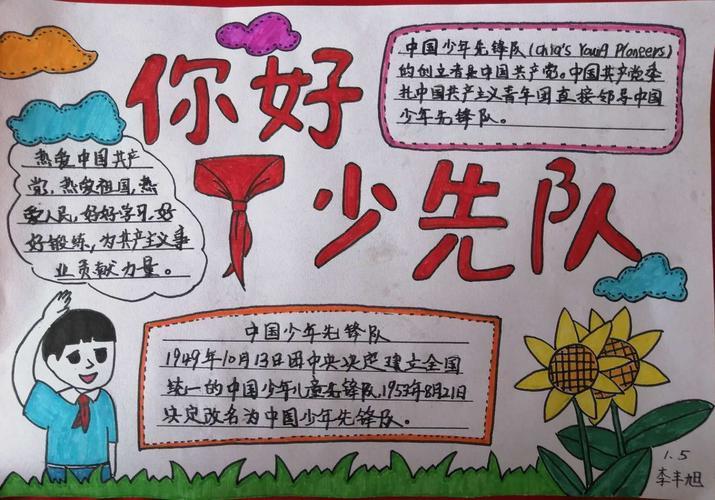 你好
少先队
中国少年先锋队(Chia's Young Pioneers)
的创立者是中国共产党。中国共产党委
托中国共产主义青年团直接领导中国
少年先锋队。
热爱中国共产
党,热爱祖国,热
爱人民,好好学习,好
好锻炼,为共产主义事
业贡献力量。
中国少年先锋队
1949年10月13日由中央决定建立全国
统一的中国少年儿童先锋队,1953年8月21日
决定改名为中国少年先锋队。
1.5
李丰旭